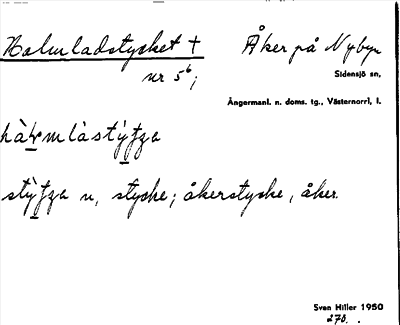 Halmladstycket + Åker på Nybyn
nr 5⁶;
Sidensjö sn,
Ångermanl. n. doms. tg., Västernorrl, l.
n, stycke; åkerstycke, åker.
Sven Hiller 1950
270.